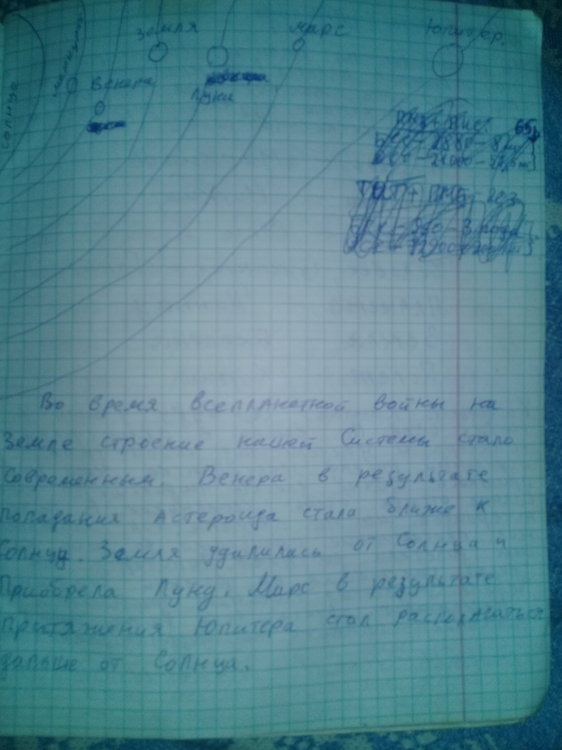 Земля
Марс
Юпитер.
Меркурий
Венера
Луна
Солнце
Во время всепланетной войны на
Земле строение нашей Системы стало
Современным. Венера в результате
попадания Астероида стала ближе к
Солнцу. Земля удалилась от Солнца и
Приобрела Луну. Марс в результате
Притяжения Юпитера стал распологаться
дальше от Солнца.